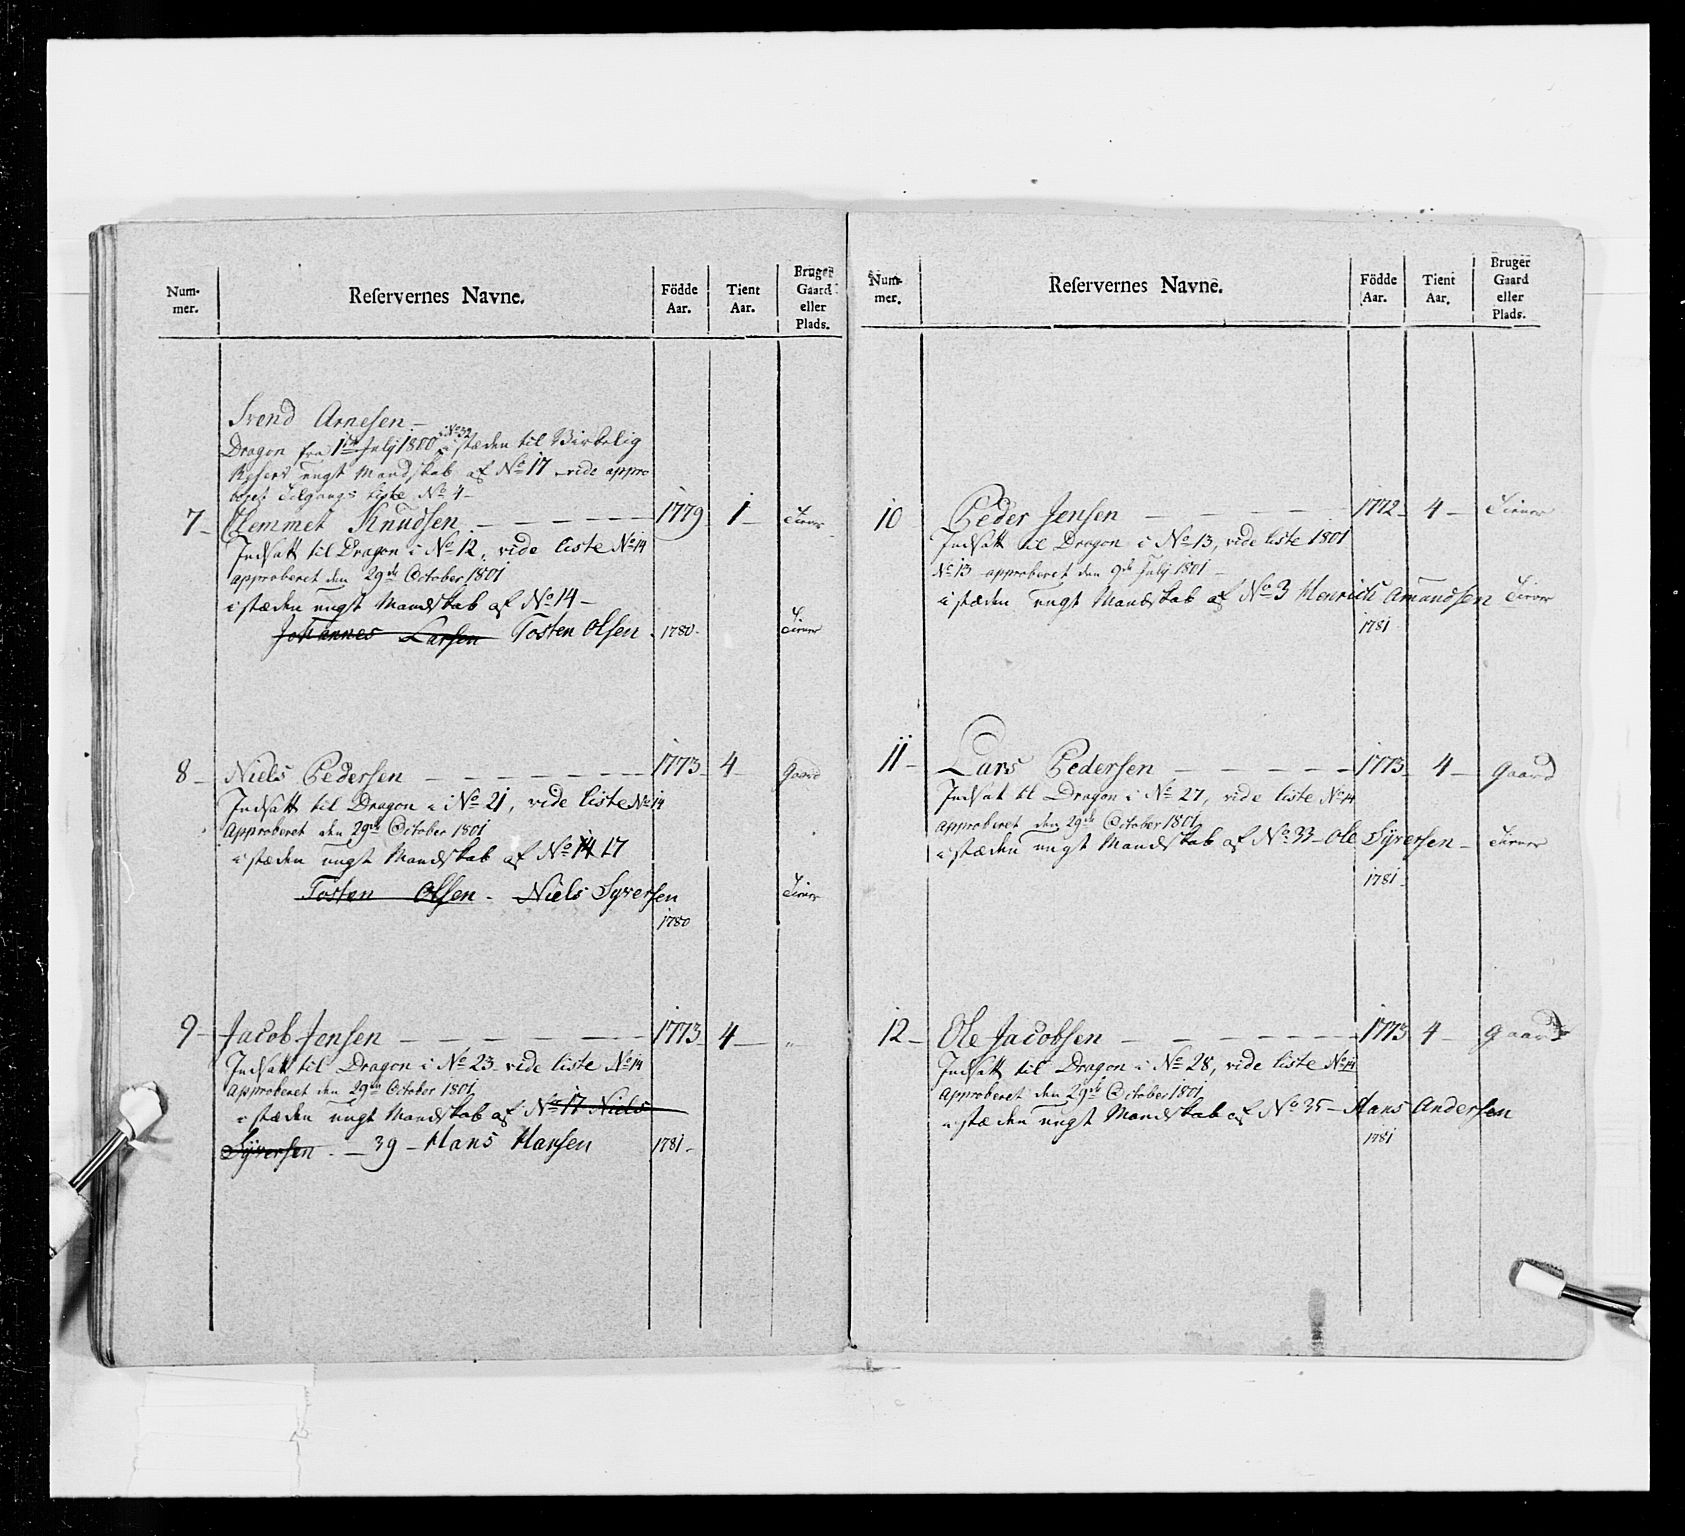 Num-
mer.
Reservernes Navne.
Födde
Aar.
Tient
Aar.
Bruger
Gaard
eller
Plads.
Svend Arnesen.—
Dragon fra 1ste Julj 1800 i No 32 i stæden til
Reserv ungt Mandskab af No 17 vide appro
beret Tilgangs Liste No 4—
7— Clemmet Knudsen — — — — 1779 1— Tiener
Indsatt til Dragon i No 12, vide Liste No 14
approberet den 29de October 1801
i stæden ungt Mandskab af No 14—
Johannes Larsen Tosten Olsen. 1780. Tiener
8— Niels Pedersen — — — — — 1773— 4— Gaard
Indsatt til Dragon i No 21, vide Liste No 14
Approberet den 29de October 1801
i stæden ungt Mandskab af No 14 17
Tosten Olsen. — Niels Syversen Tiener
1780
9— Jacob Jensen — — — — — 1773 4— "
Indsatt til Dragon i No 23 vide Liste No 14
Approberet den 29de October 1801
i stæden ungt Mandskab af No 17 Niels
Syversen. — 39 — Hans Hansen 1781.
Num-
mer.
Reservernes Navne.
Födde
Aar.
Tient
Aar.
Bruger
Gaard
eller
Plads.
10 Peder Jensen — — — — 1772— 4— Tiener
Indsatt til Dragon i No 13, vide Liste 1801
No 13 approberet den 9de Julj 1801—
i stæden ungt Mandskab af No 3 Henrich Amundsen Tiener
1781
11— Lars Pedersen — — — — 1773— 4— Gaard
Indsat til Dragon i No 27, vide Liste No 14
approberet den 29de October 1801
i stæden ungt Mandskab af No 33— Ole Syversen— Tiener
1781.
12— Ole Jacobsen — — — — — 1773 4— Gaard
Indsatt til Dragon i No 28, vide Liste No 14
Approberet den 29de October 1801
i stæden ungt Mandskab af No 35— Hans Andersen
1781